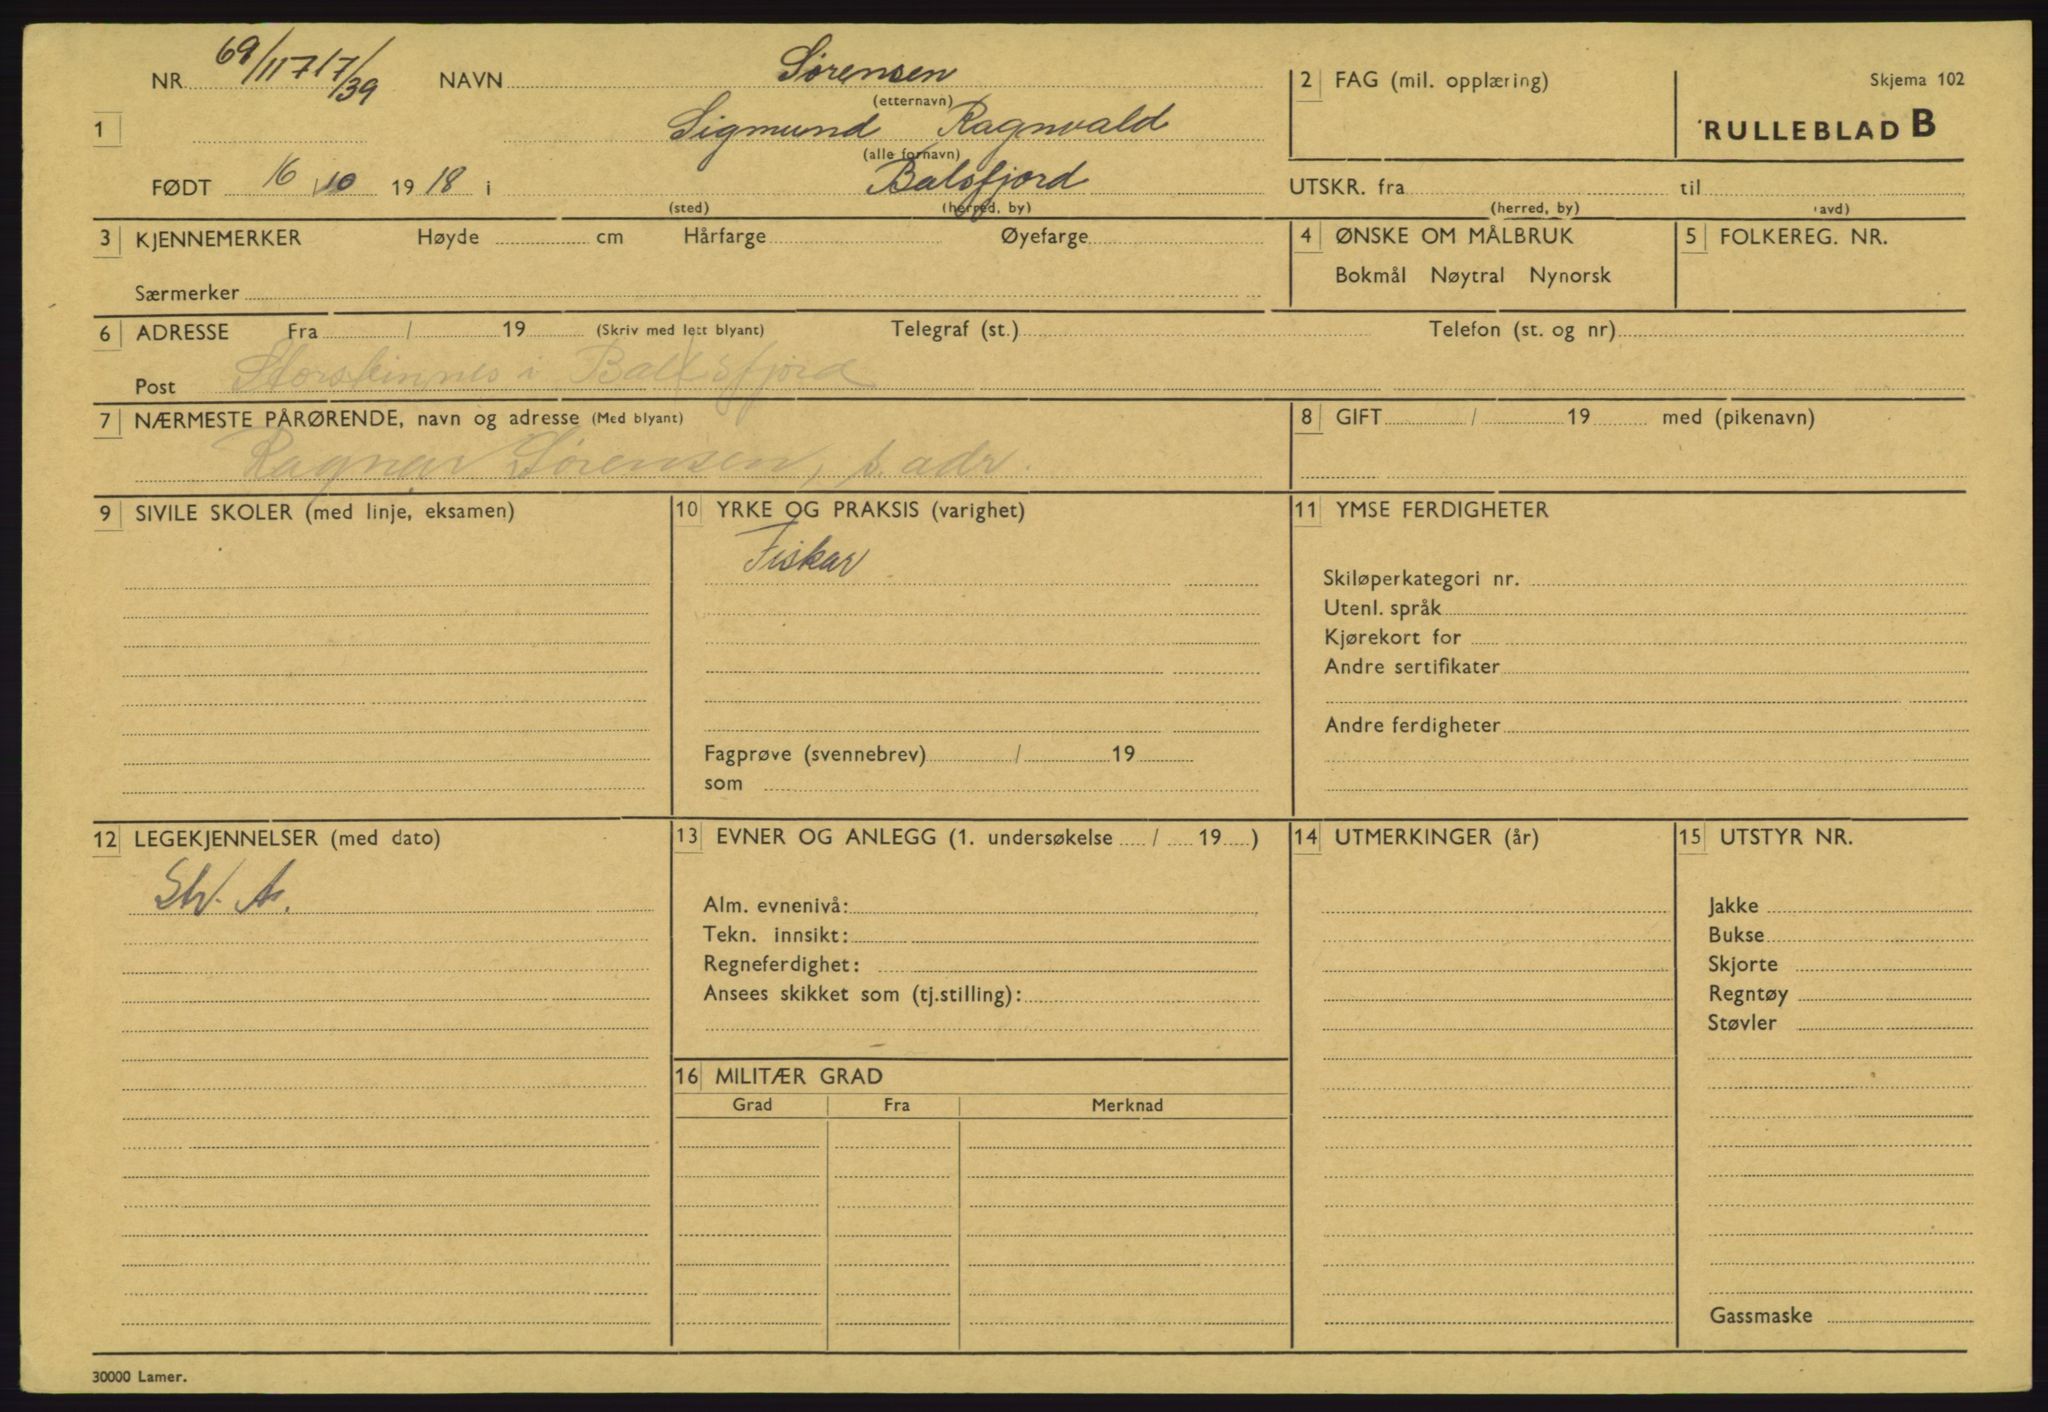 NR. 69/11717/39 NAVN Sørensen 2 FAG (mil. opplæring) Skjema 102
(etternavn)
1 Sigmund Ragnvald RULLEBLAD B
(alle fornavn)
FØDT 16 10 1918 i Balsfjord UTSKR. fra til
(sted) (herred, by) (herred, by) (avd)
3 KJENNEMERKER Høyde cm Hårfarge Øyefarge 4 ØNSKE OM MÅLBRUK 5 FOLKEREG. NR.
Bokmål Nøytral Nynorsk
Særmerker
6 ADRESSE Fra / 19 (Skriv med lett blyant) Telegraf (st.) Telefon (st. og nr)
Post Storsteinnes i Balsfjord
7 NÆRMESTE PÅRØRENDE, navn og adresse (Med blyant) 8 GIFT / 19 med (pikenavn)
Ragnar Sørensen, s. adr.
9 SIVILE SKOLER (med linje, eksamen) 10 YRKE OG PRAKSIS (varighet) 11 YMSE FERDIGHETER
Fiskar
Skiløperkategori nr.
Utenl. språk
Kjørekort for
Andre sertifikater
Andre ferdigheter
Fagprøve (svennebrev) / 19
som
12 LEGEKJENNELSER (med dato) 13 EVNER OG ANLEGG (1. undersøkelse / 19 ) 14 UTMERKINGER (år) 15 UTSTYR NR.
Alm. evnenivå: Jakke
Tekn. innsikt: Bukse
Regneferdighet: Skjorte
Ansees skikket som (tj.stilling): Regntøy
Støvler
16 MILITÆR GRAD
Grad Fra Merknad
Gassmaske
30000 Lamer.